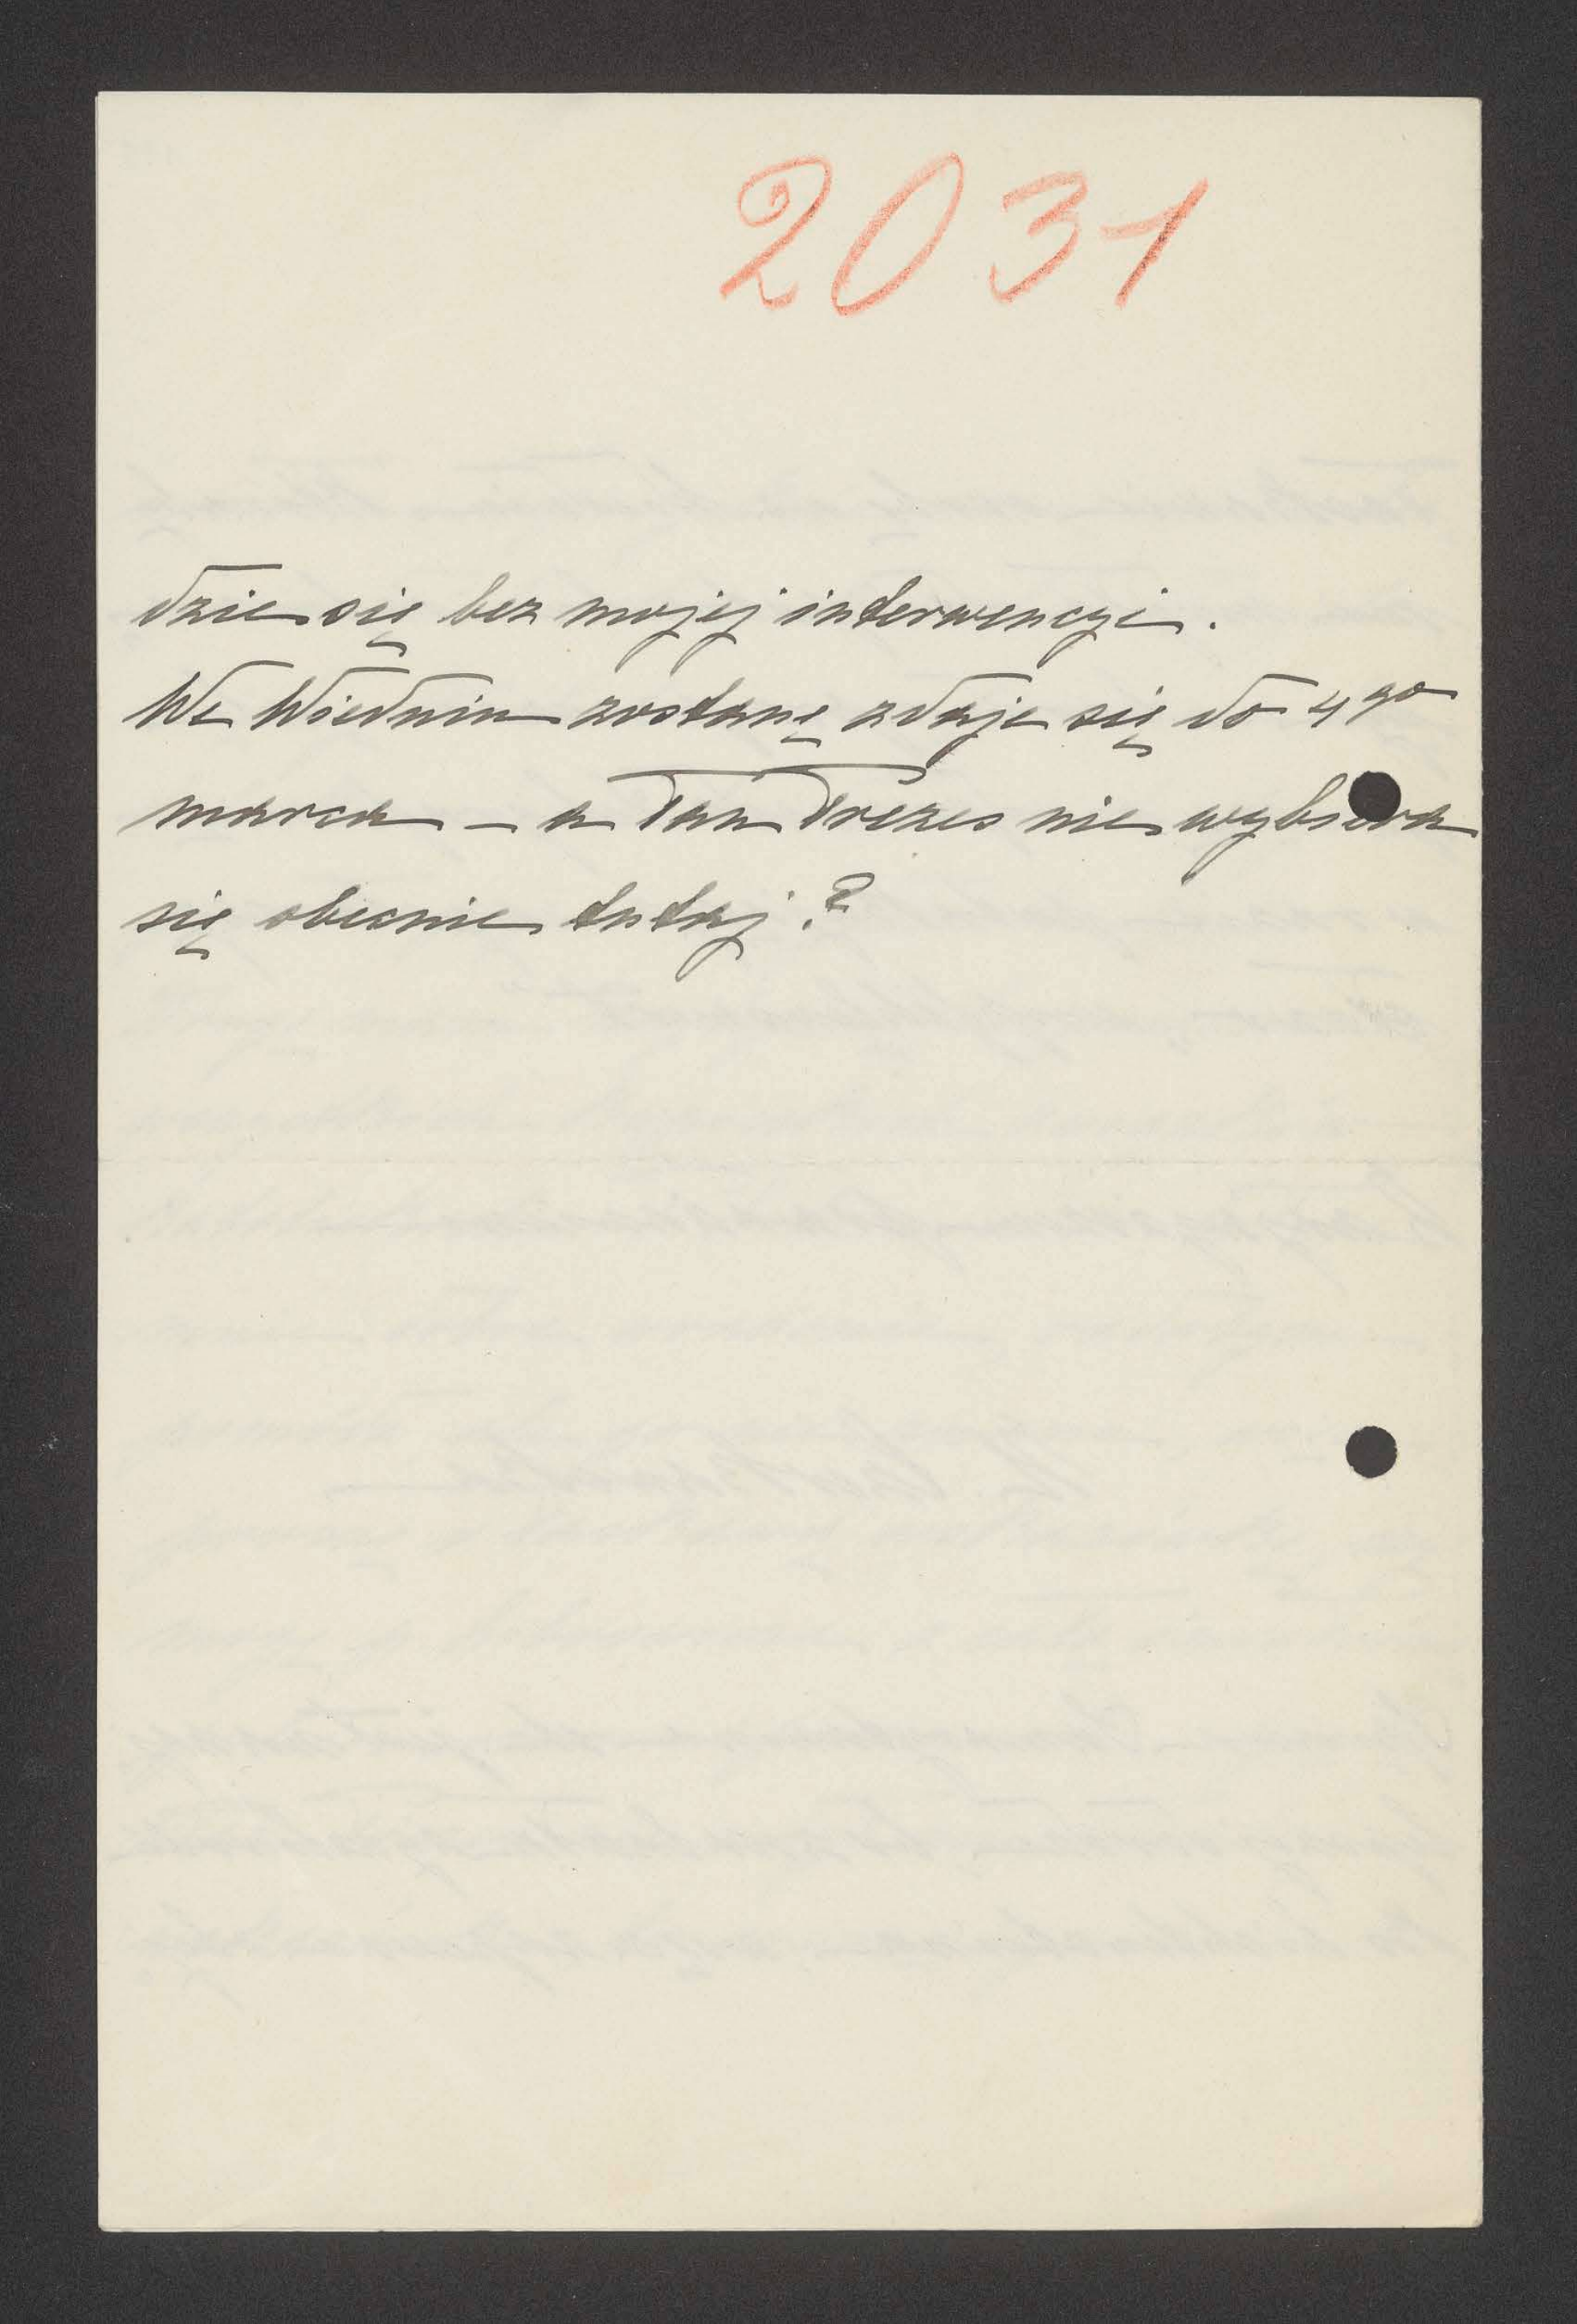 2031
dzie się bez mojej interwencyi.
We Wiedniu zostanę zdaje się do 4go
marca – a Pan Prezes nie wybiera
się obecnie tutaj?